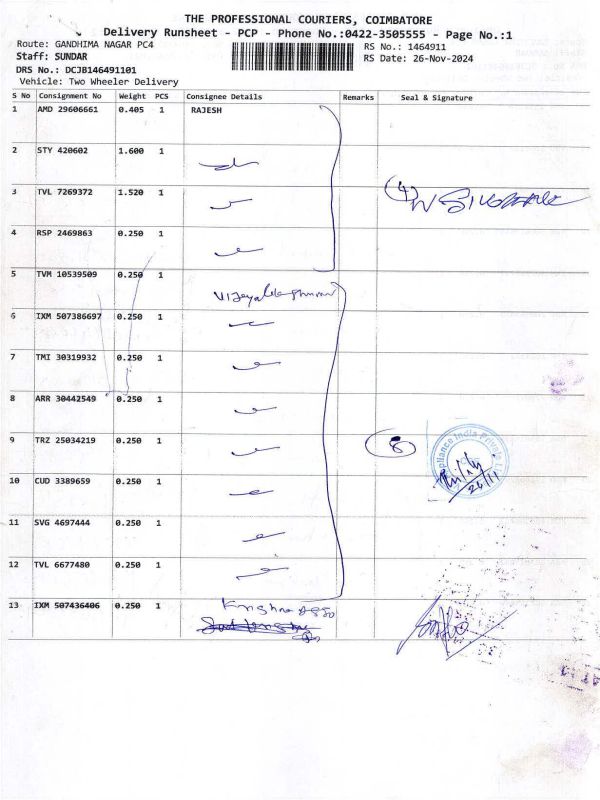 THE PROFESSIONAL COURIERS, COIMBATORE
Delivery Runsheet - PCP - Phone No.:0422-3505555 - Page No.:1
Route: GANDHIMA NAGAR PC4
RS No.: 1464911
Staff: SUNDAR
RS Date: 26-Nov-2024
DRS No.: DCJB146491101
Vehicle: Two Wheeler Delivery
S No Consignment No Weight PCS Consignee Details Remarks Seal & Signature
1 AMD 29606661 0.405 1 RAJESH
2 STY 420602 1.600 1
3 TVL 7269372 1.520 1 (4)
4 RSP 2469863 0.250 1
5 TVM 10539509 0.250 1
6 IXM 507386697 0.250 1
7 TMI 30319932 0.250 1
8 ARR 30442549 0.250 1
9 TRZ 25034219 0.250 1 8
pliance India Private
26/11
10 CUD 3389659 0.250 1
11 SVG 4697444 0.250 1
12 TVL 6677480 0.250 1
13 IXM 507436406 0.250 1 Krishna